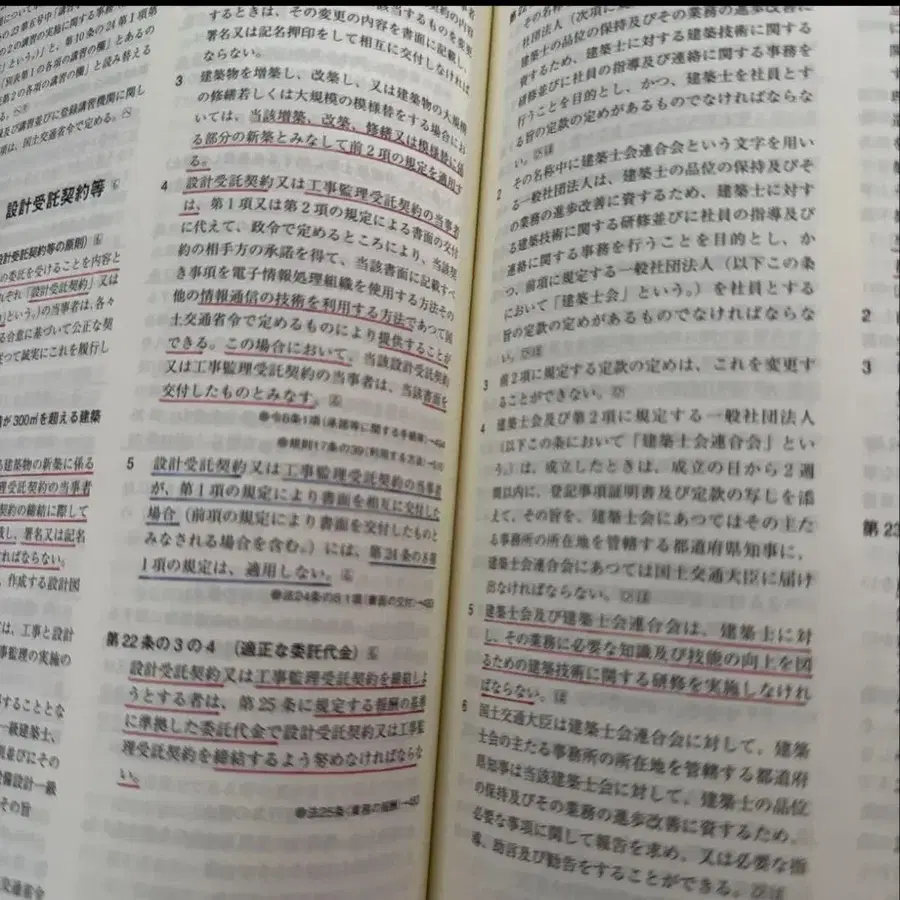 ついて準
の23第五号中「講習
の2の講習の実施に関する事務（
」という。）」と、第10条の24第1項第
「別表第1の各項の講習の欄」とあるの
第2の各項の講習の欄」と読み替える
る。
及び講習並びに登録講習機関に関し
項は、国土交通省令で定める。
設計受託契約等
設計受託契約等の原則）
の委託を受けることを内容と
れぞれ「設計受託契約」又は
」という。）の当事者は、各々
る合意に基づいて公正な契
従つて誠実にこれを履行し
積が300㎡を超える建築
る建築物の新築に係る
理受託契約の当事者
契約の締結に際して
載し、署名又は記名
ければならない。
、作成する設計図
は、工事と設計
事監理の実施の
することとな
一級建築士、
並びにその
備設計一級
その旨
交通省令
するときは、その変更の内容を書面に記載し、
署名又は記名押印をして相互に交付しなければ
ならない。
3 建築物を増築し、改築し、又は建築物の大規模
の修繕若しくは大規模の模様替をする場合にお
いては、当該増築、改築、修繕又は模様替に係
る部分の新築とみなして前2項の規定を適用す
る。
4 設計受託契約又は工事監理受託契約の当事者
は、第1項又は第2項の規定による書面の交付
に代えて、政令で定めるところにより、当該契
約の相手方の承諾を得て、当該書面に記載すべ
き事項を電子情報処理組織を使用する方法その
他の情報通信の技術を利用する方法であつて国
土交通省令で定めるものにより提供することが
できる。この場合において、当該設計受託契約
又は工事監理受託契約の当事者は、当該書面を
交付したものとみなす。
●令8条1項（承諾等に関する手続等）→
●規則17条の39（利用する方法）→
5 設計受託契約又は工事監理受託契約の当事者
が、第1項の規定により書面を相互に交付した
場合（前項の規定により書面を交付したものと
みなされる場合を含む。）には、第24条の8第
1項の規定は、適用しない。
●法24条の8 1項（書面の交付）→
第22条の3の4 （適正な委託代金）
設計受託契約又は工事監理受託契約を締結しよ
うとする者は、第25条に規定する報酬の基準
に準拠した委託代金で設計受託契約又は工事監
理受託契約を締結するよう努めなければならな
い。
●法25条（業務の報酬）→
その名称中に
社団法人（次項に規
建築士の品位の保持及びその業務の進歩改善に
資するため、建築士に対する建築技術に関する
研修並びに社員の指導及び連絡に関する事務を
行うことを目的とし、かつ、建築士を社員とす
る旨の定款の定めがあるものでなければならな
い。
2 その名称中に建築士会連合会という文字を用い
る一般社団法人は、建築士の品位の保持及びそ
の業務の進歩改善に資するため、建築士に対す
る建築技術に関する研修並びに社員の指導及び
連絡に関する事務を行うことを目的とし、か
つ、前項に規定する一般社団法人（以下この条
において「建築士会」という。）を社員とする
旨の定款の定めがあるものでなければならな
い。
3 前2項に規定する定款の定めは、これを変更す
ることができない。
4 建築士会及び第2項に規定する一般社団法人
（以下この条において「建築士会連合会」とい
う。）は、成立したときは、成立の日から2週
間以内に、登記事項証明書及び定款の写しを添
えて、その旨を、建築士会にあつてはその主た
る事務所の所在地を管轄する都道府県知事に、
建築士会連合会にあつては国土交通大臣に届け
出なければならない。
5 建築士会及び建築士会連合会は、建築士に対
し、その業務に必要な知識及び技能の向上を図
るための建築技術に関する研修を実施しなけれ
ばならない。
6 国土交通大臣は建築士会連合会に対して、建築
士会の主たる事務所の所在地を管轄する都道府
県知事は当該建築士会に対して、建築士の品位
の保持及びその業務の進歩改善に資するため、
必要な事項に関して報告を求め、又は必要な指
導、助言及び勧告をすることができる。
2
3
第23